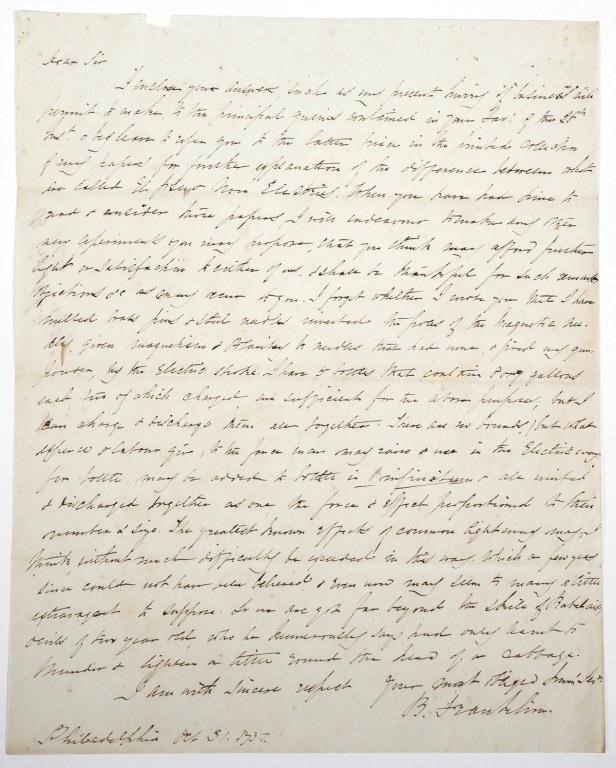 Dear Sir
I inclose you answers such as my present hurry of business will
permit to make to the principal queries contained in your Favr of the 28th
inst. & beg leave to refer you to the latter piece in the printed collection
of my papers for further explanation of the difference between what
are called Electrics & Non Electrics. When you have had time to
read & consider those papers, I will endeavour to make any other
new experiments you may propose, that you think may afford further
light or satisfaction to either of us, & shall be thankful for such remarks
objections &c as may occur to you. I forget whether I wrote you that I have
melted brass pins & steel needles, inverted the poles of the Magnetic nee-
dle, given magnetism & Polarity to needles that had none, & fired dry gun
powder, by the Electric stroke. I have bottles that contain 8 or 9 gallons
each two of which charged are sufficient for the above purpose, but I
can charge & discharge them all together. There are no bounds, but what
expence & labour give, to the force man may raise & use in the Electric way
for bottle may be added to bottle in infinitum & all united
& discharged together as one, the force & effect proportioned to their
number & size. The greatest known effects of common lightning may I
think without much difficulty be exceeded in this way. Which a few years
since could not have been believed, & even now may seem to many a little
extravagant to suppose. So we are got far beyond the skill of Rabelais's
devils of two year old, who he humourously says had only learnt to
thunder & lighten a little round the head of a cabbage.
I am with sincere respect Your most obliged humle Servt.
B. Franklin.
Philadelphia Oct 31. 1737.